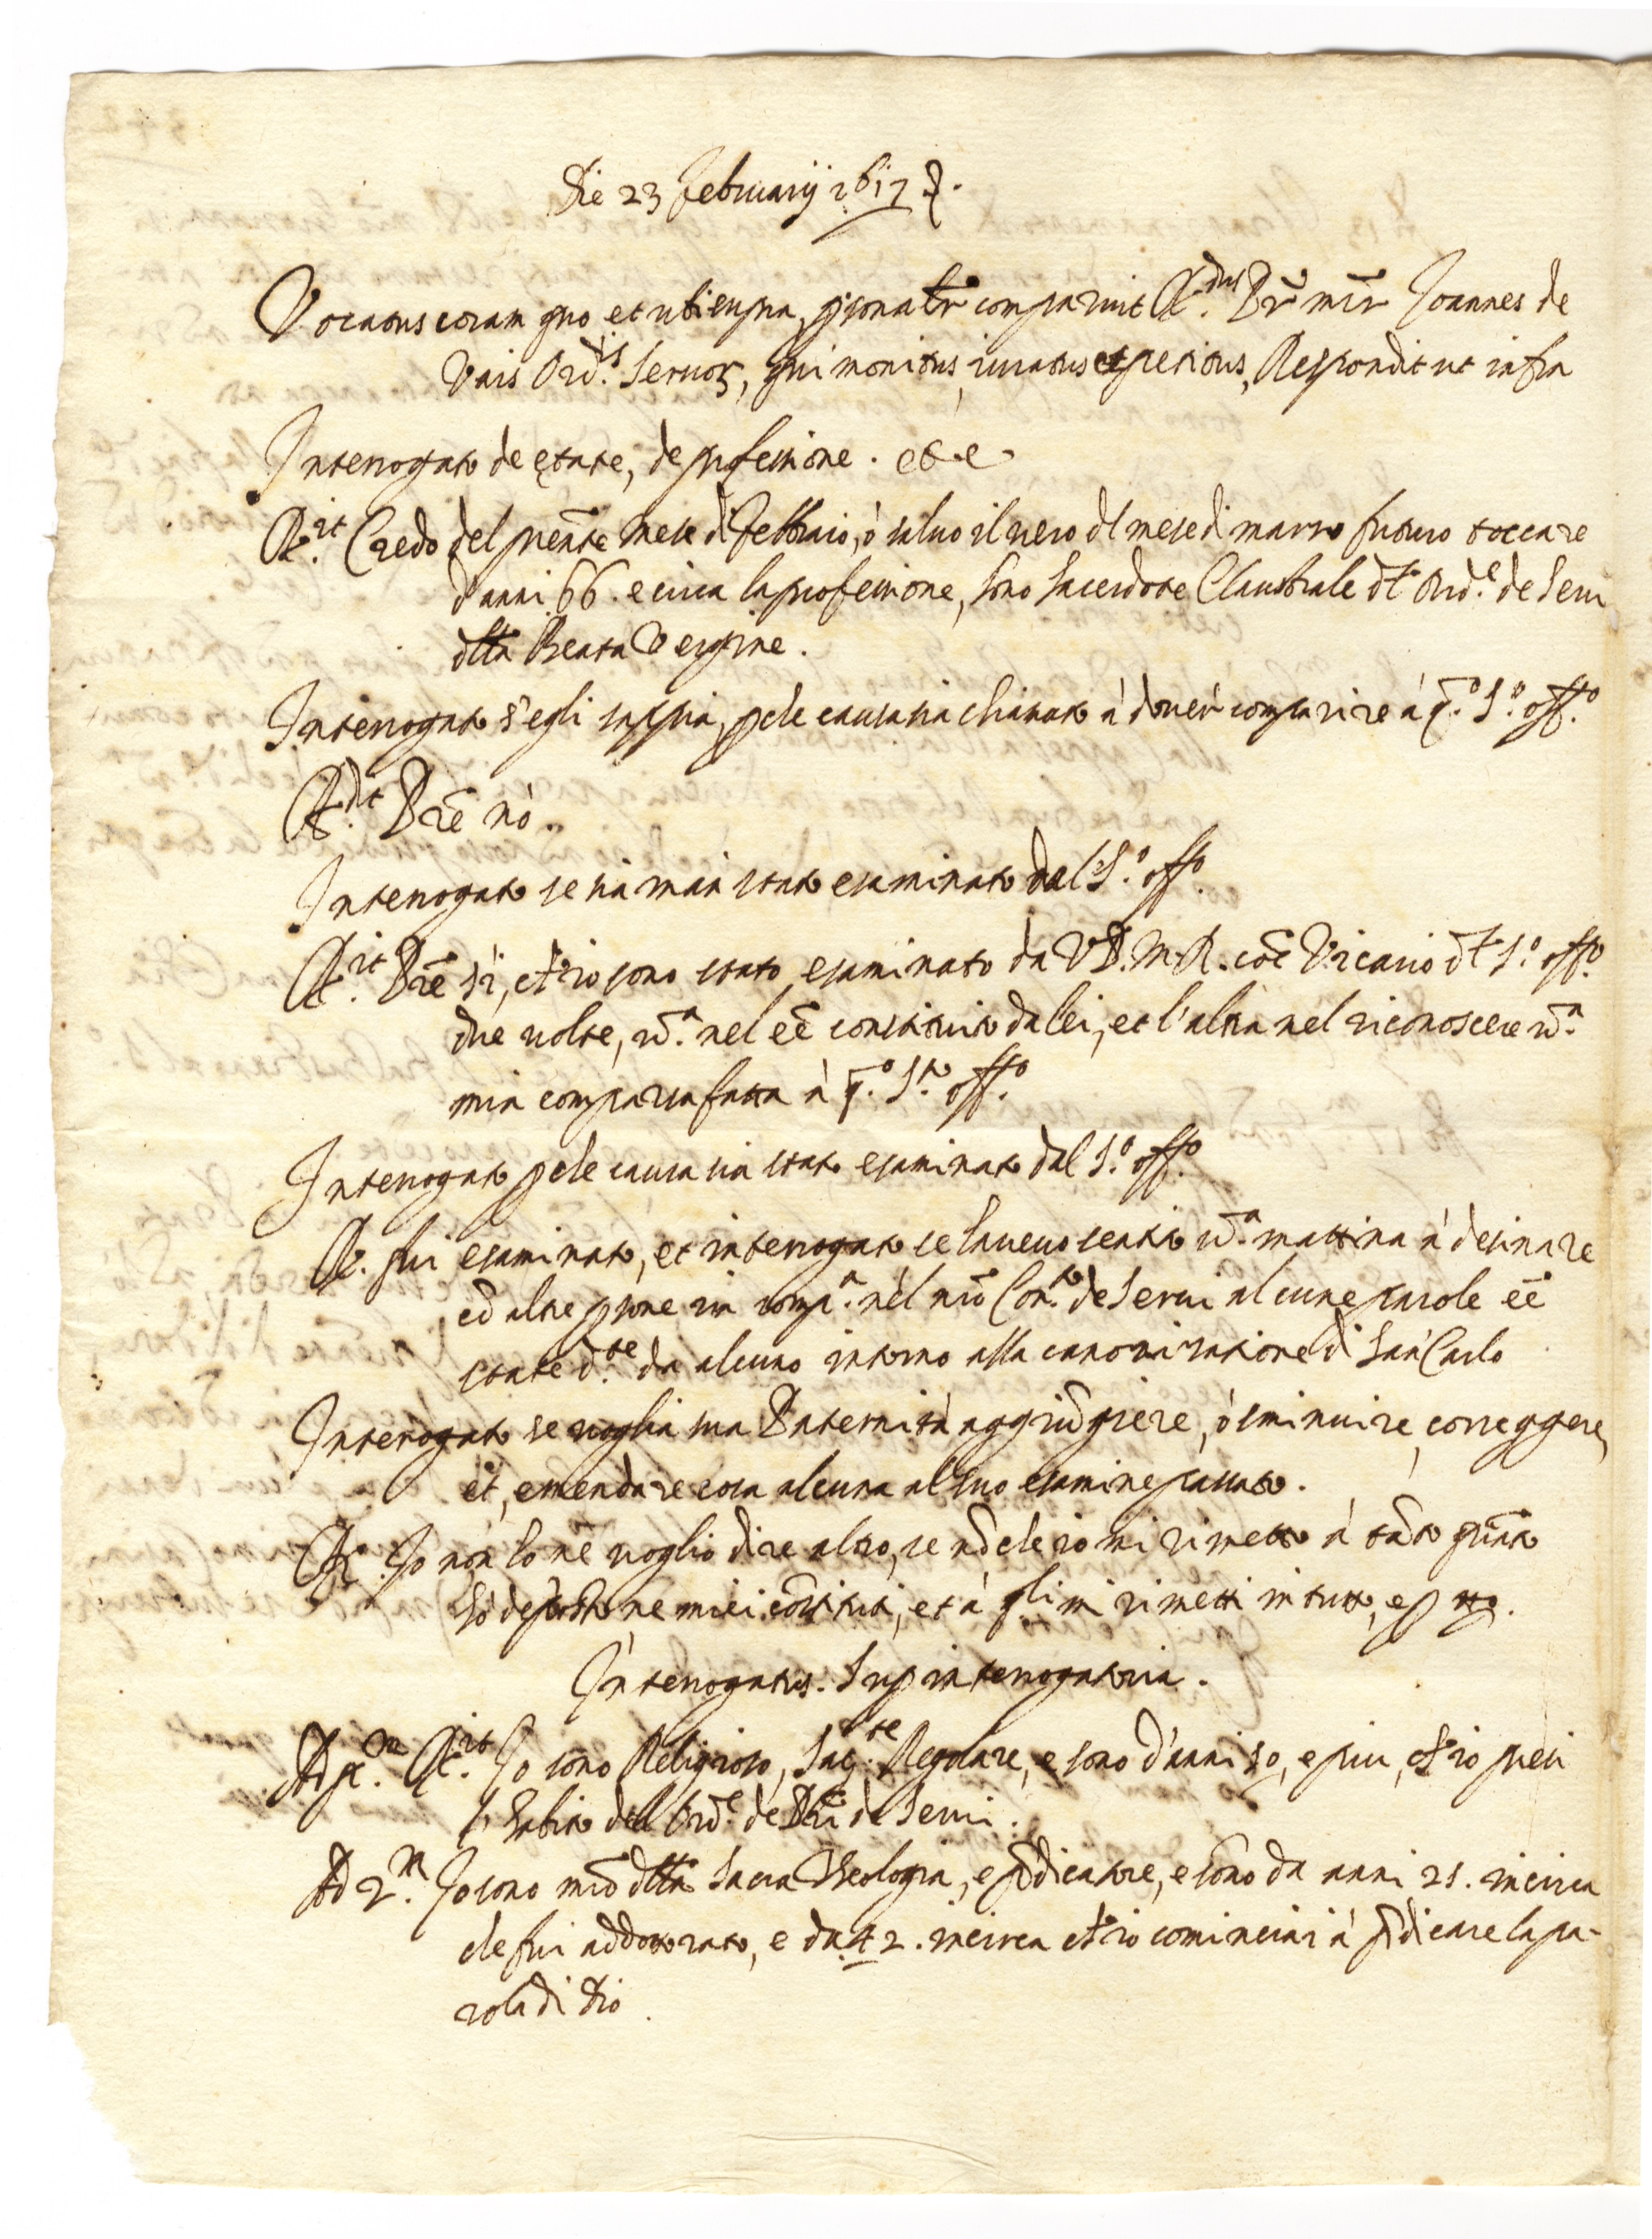 Die 23 februarij 1617
Vocatus coram quo et ubi supra, psonalr comparuit R.dus Pr mr Joannes de
Vais Ord.is Seruor, qui monitus, iuratus et petitus, Respondit ut infra
Interrogato de etate, de professione . etc
R.it Credo del pnte mese di febbraio, ò saluo il uero dl mese di marzo futuro toccare
d'anni 66. e circa la professione, sono sacerdote Claustrale dl Ord.e de Serui
dlla Beata Vergine.
Interrogato s'egli sappia, p che causa sia chiamato à douer comparire à q.o S.o off.o
R.dit Pre nò.
Interrogato se sia mai stato esaminato dal S.o off.o
R.it Pre sì, ch'io sono stato esaminato da V P. M. R. coe Vicario dl S.o off.o
due volte, un.a nel ee constituito da lei, et l'altra nel riconoscere un.a
mia comparsa fatta à q.o S.to off.o
Interrogato p che causa sia stato esaminato dal S.o off.o
R. fui esaminato, et interrogato se haueuo sentito un.a mattina à desinare
cō altre psone in comp.a nel nro Con.to de Serui alcune parole ee
state d.te da alcuno intorno alla canonizatione di San Carlo
Interrogato se uoglia sua Paternità aggiūgiere, ò sminuire, correggere,
et, emendare cosa alcuna al suo esamine passato.
R. Io non ho ne uoglio dire altro, se nō che io mi rimetto à tāto quāto
hò deposto ne miei cōstituti, et à qli mi rimetti in tutto, e p tto.
Interrogatus. Sup interrogatoria.
Ad p.m R.it Io sono Religioso, Sac.te Regolare, e sono d'anni 50, e piu, ch'io presi
l'habito dell Ord.e de Pri de Serui.
Ad 2.m Io sono mro dlla sacra Theologia, e pdicatore, e sono da anni 21. incirca
che fui addottorato, e da 42. incirca ch'io cominciai à pdicare la pa-
rola di Dio.